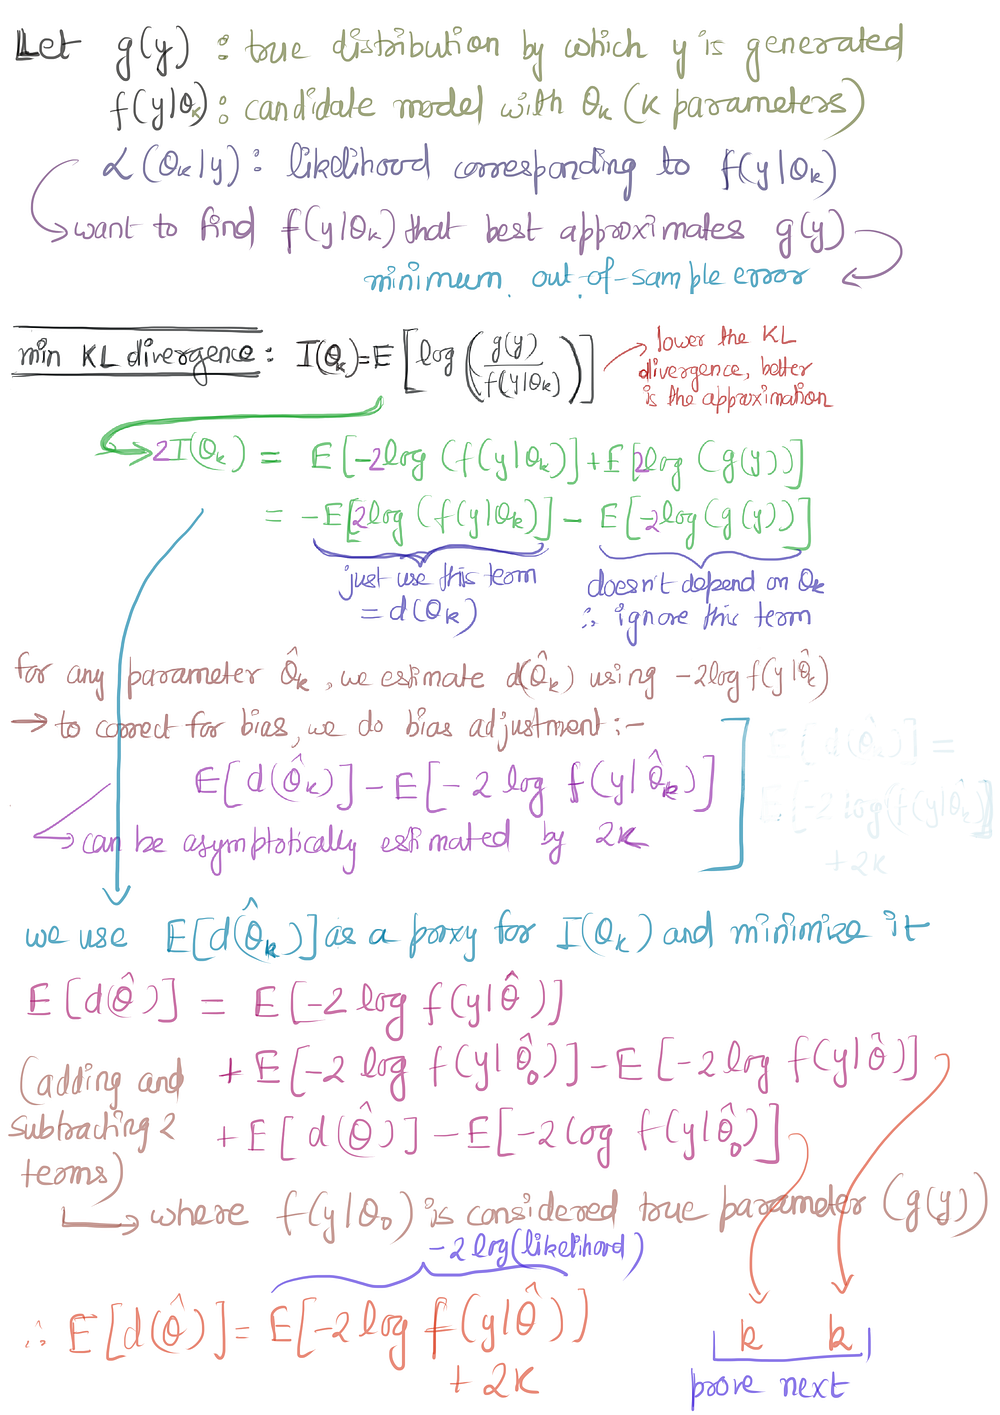 Let g(y) : true distribution by which y is generated
f(y|θk) : candidate model with θk (k parameters)
L(θk|y) : likelihood corresponding to f(y|θk)
want to find f(y|θk) that best approximates g(y)
minimum out-of-sample error
min KL divergence : I(θk) = E[log(g(y)/f(y|θk))]
lower the KL
divergence, better
is the approximation
2I(θk) = E[-2log(f(y|θk)] + E[2log(g(y))]
= -E[2log(f(y|θk)] - E[-2log(g(y))]
just use this term
= d(θk)
doesn't depend on θk
∴ ignore this term
for any parameter θ̂k, we estimate d(θ̂k) using -2log f(y|θ̂k)
→ to correct for bias, we do bias adjustment :-
E[d(θ̂k)] - E[-2 log f(y|θ̂k)]
can be asymptotically estimated by 2k
E[d(θ̂)] =
E[-2 log(f(y|θ̂k)]
+ 2k
we use E[d(θ̂k)] as a proxy for I(θk) and minimize it
E[d(θ̂)] = E[-2 log f(y|θ̂)]
+ E[-2 log f(y|θ̂o)] - E[-2 log f(y|θ̂)]
+ E[d(θ̂)] - E[-2 log f(y|θ̂o)]
(adding and
subtracting 2
terms)
where f(y|θo) is considered true parameter (g(y))
-2 log(likelihood)
∴ E[d(θ̂)] = E[-2 log f(y|θ̂)]
+ 2k
k k
prove next